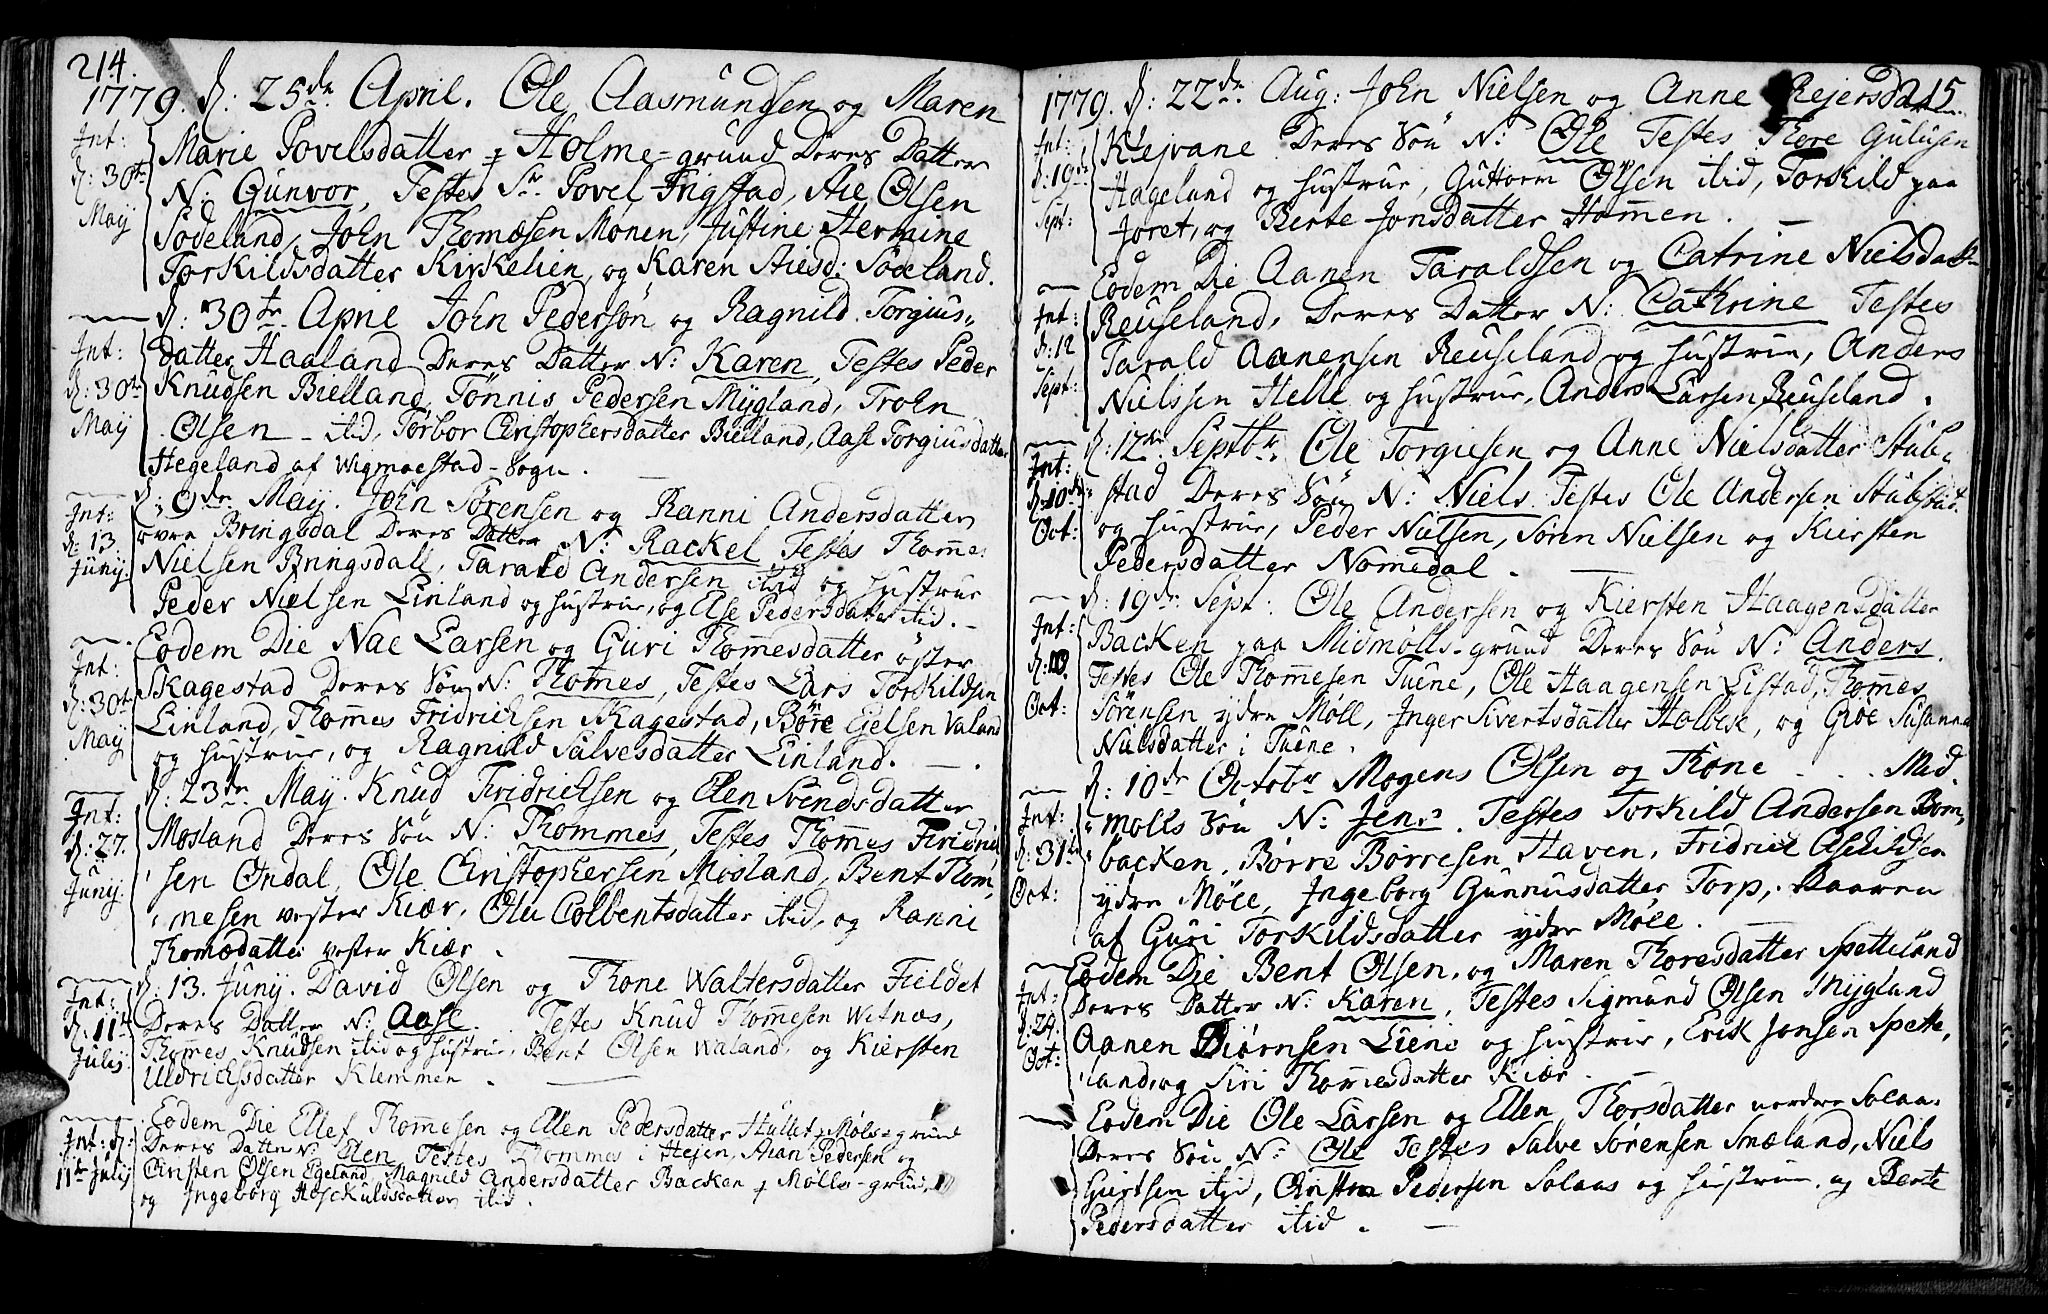 214.
1779. d: 25de April. Ole Aasmundsen og Maren
Int: d: 30te May
Marie Povelsdatter p Holme-grund Deres Datter
N: Gunvor, Testes Sr Povel Frigstad, Aie Olsen
Sodeland, John Thomæsen Monen, Justine Hermine
Torkildsdatter Kirkelien, og Karen Aiesd: Sodeland.
d: 30te April John Pedersøn og Ragnild Torgius-
Int: d: 30te May
datter Haaland Deres Datter N: Karen, Testes Peder
Knudsen Bielland, Tønnis Pedersen Mygland, Troln
Olsen - itid, Torbor Christophersdatter Bielland, Aase Torgiusdatter
Hegeland af Wigmoestad-Sogn.
d: 9de May. John Sørensen og Ranni Andersdatter
Int: d: 13 Junij.
øvre Bringsdal Deres Datter N: Rackel Testes Thomes
Nielsen Bringsdall, Tarald Andersen itid og hustrue
Peder Nielsen Linland og hustrue, og Else Pedersdatter itid. -
Eodem Die Nae Larsen og Guri Thomesdatter øster
Int: d: 30te May
Skagestad Deres Søn N: Thomes, Testes Lars Torkildsen
Linland, Thomes Fridrichsen Skagestad, Børe Ejelsen Valand
og hustrue, og Ragnild Salvesdatter Linland. - .
d: 23de May. Knud Fridrichsen og Elen Svendsdatter
Int: d: 27. Junij.
Mosland Deres Søn N: Thommes, Testes Thomes Fridric
sen Øndal, Ole Christophersen Mosland, Bent Thom,
mesen vester Kiær, Olu Colbentsdatter itid, og Ranni
Thomædatter vester Kiær.
d: 13. Junij. David Olsen og Thone Waltersdatter Fieldet
Int: d: 11te Julij
Deres Datter N: Aase. Testes Knud Thomesen Witnæs,
Thomes Knudsen itid og hustrue, Bent Olsen Waland, og Kiersten
Uldrichsdatter Klemmen.
Eodem Die Ellef Thomesen og Ellen Pedersdatter Hullet p Møls-grund
Int: d: 11te Julij
Deres Datter N: Elen, Testes Thommes i Hejen, Aian Pedersen og
Christen Olsen Egeland, Magnild Andersdatter Backen p Mølls-grund
og Ingeborg Hosckuldsdatter itid.
215
1779. d: 22de Aug: John Nielsen og Anne Rejersdat
Int: d: 19de Sept:
Klejvane Deres Søn N: Ole Testes Thore Gulusen
Hageland og hustrue, Guttorm Olsen itid, Torkild paa
Joret, og Berte Jonsdatter Homen. -
Eodem Die Aanen Taraldsen og Catrine Nielsdatt
Int: d: 12 Sept:
Reuseland, Deres Datter N: Cathrine Testes
Tarald Aanensen Reuseland og hustrue, Anders
Nielssen Helle og hustrue, Anders Larsen Reuseland.
d: 12te Septbr. Ole Torgiesen og Anne Nielsdatter Stub-
Int: d: 10de Oct:
stad Deres Søn N: Niels Testes Ole Andersen Stubstad
og hustrue, Peder Nielsen, Søren Nielsen og Kiersten
Pedersdatter Nomedal. -
d: 19de Sept: Ole Andersen og Kiersten Haagensdatter
Int: d: 10. Oct:
Backen paa Midmolls-grund Deres Søn N: Anders.
Testes Ole Thomesen Tuene, Ole Haagensen Listad, Thomes
Sørensen ydre Møll, Inger Sivertsdatter Holbek, og Groe Susanna
Nielsdatter i Tuene.
d: 10de Octobr Mogens Olsen og Thone . . . Mid.
Int: d: 31te Oct:
molls Søn N: Jens. Testes Torkild Andersen Bom,
backen, Børre Børresen Haven, Fridrich Askildsen
ydre Møle, Ingeborg Gunnusdatter Torp, Baaren
af Guri Torkildsdatter ydre Møle.
Eodem Die Bent Olsen, og Maren Thoresdatter Spetteland
Int: d: 29. Oct:
Deres Datter N: Karen, Testes Sigmund Olsen Mygland
Aanen Biørnsen Liene og hustrue, Erik Jonsen Spette,
land, og Siri Thomesdatter Kiær. -
Eodem Die Ole Larsen og Ellen Thorsdatter nordre Solaas
Deres Søn N: Ole Testes Salve Sørensen Smæland, Niels
Guttsen itid, Christen Pedersen Solaas og hustrue, og Berte
Pedersdatter itid. -